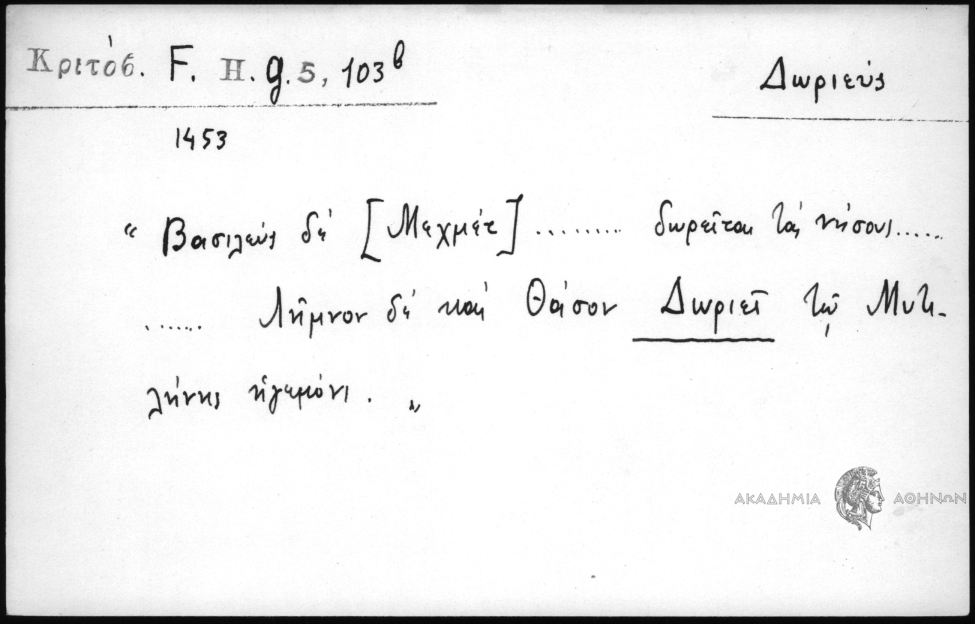 Κριτόβ. F. H. g. 5, 103β
Δωριεύς
1453
" Βασιλεύς δέ [Μεχμέτ] ......... δωρεῖται τάς νήσους......
...... Λῆμνον δέ καί Θάσον Δωριεῖ τῷ Μυτι-
λήνης ἡγεμόνι. "
ΑΚΑΔΗΜΙΑ ΑΘΗΝΩΝ